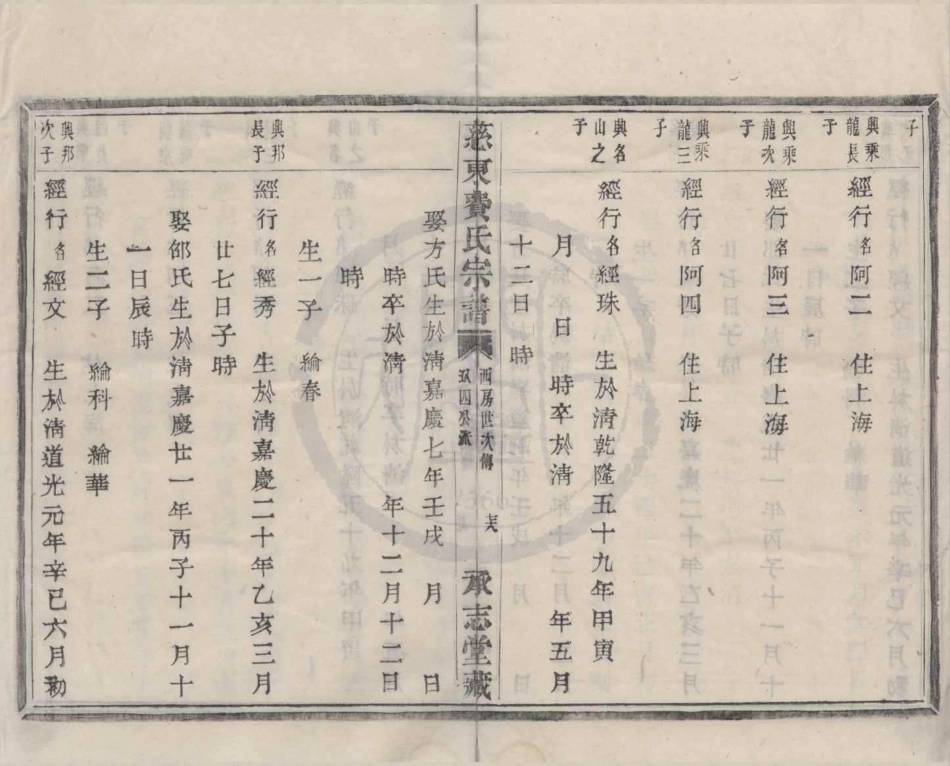 子
興乘龍長子
經行名阿二 住上海
興乘龍次子
經行名阿三 住上海
興乘龍三子
經行名阿四 住上海
興名山之子
經行名經珠 生於清乾隆五十九年甲寅
月 日 時卒於清 年五月
十三日 時
慈東費氏宗譜 西房世次傳 承志堂藏
娶方氏生於清嘉慶七年壬戌 月 日
時卒於清 年十二月十二日
時
生一子 綸春
興邦長子
經行名經秀 生於清嘉慶二十年乙亥三月
廿七日子時
娶邰氏生於清嘉慶廿一年丙子十一月十
一日辰時
生二子 綸科 綸華
興邦次子
經行名經文 生於清道光元年辛巳六月初